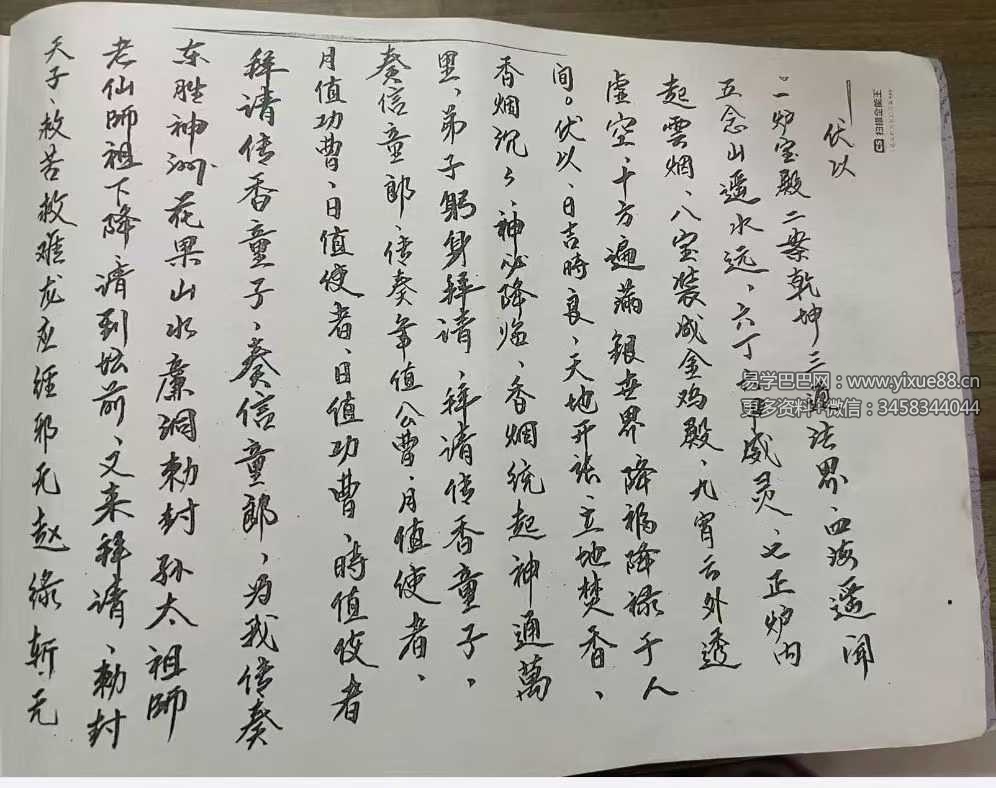 伏以
一炉宝殿二案乾坤三道法界、四海遥闻
五念山遥水远、六丁 威灵、七正炉内
起雲烟、八宝装成金鸡殿、九宵云外透
虚空、十方遍满銀世界降福降禄于人
间。伏以、日吉時良、天地开张、立地焚香、
香烟沉々、神必降临、香烟统起神通萬
里、弟子躬身拜请、拜请传香童子、
奏信童郎、传奏年值公曹、月值使者、
月值功曹、日值使者、日值功曹、時值使者
拜请传香童子、奏信童郎、为我传奏
东胜神洲花果山水廉洞勅封孙太祖師
老仙師祖下降请到坛前、又来拜请、勅封
天子、救苦救难 赵 斩
扫描全能王
易学巴巴网：www.yixue88.cn
更多资料+微信：3458344044